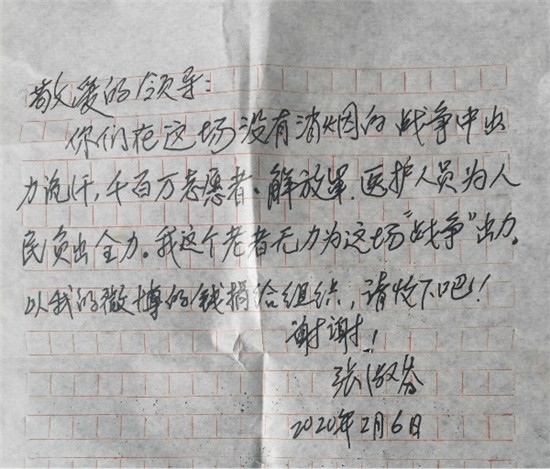 敬爱的领导:
你们在这场没有消烟的战争中出
力流汗,千百万志愿者、解放军、医护人员为人
民负出全力。我这个老者无力为这场"战争"出力。
以我的微博的钱捐给组织,请收下吧!!
谢谢!
张淑芬
2020年2月6日